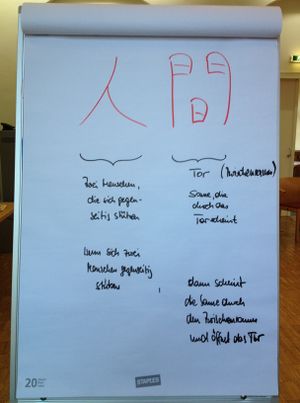 人間
Zwei Menschen,
die sich gegen-
seitig stützen
Tor (Zwischenraum)
Sonne, die
durch das
Tor scheint
Wenn sich zwei
Menschen gegenseitig
stützen
dann scheint
die Sonne durch
den Zwischenraum
und öffnet das Tor
20
STAPLES